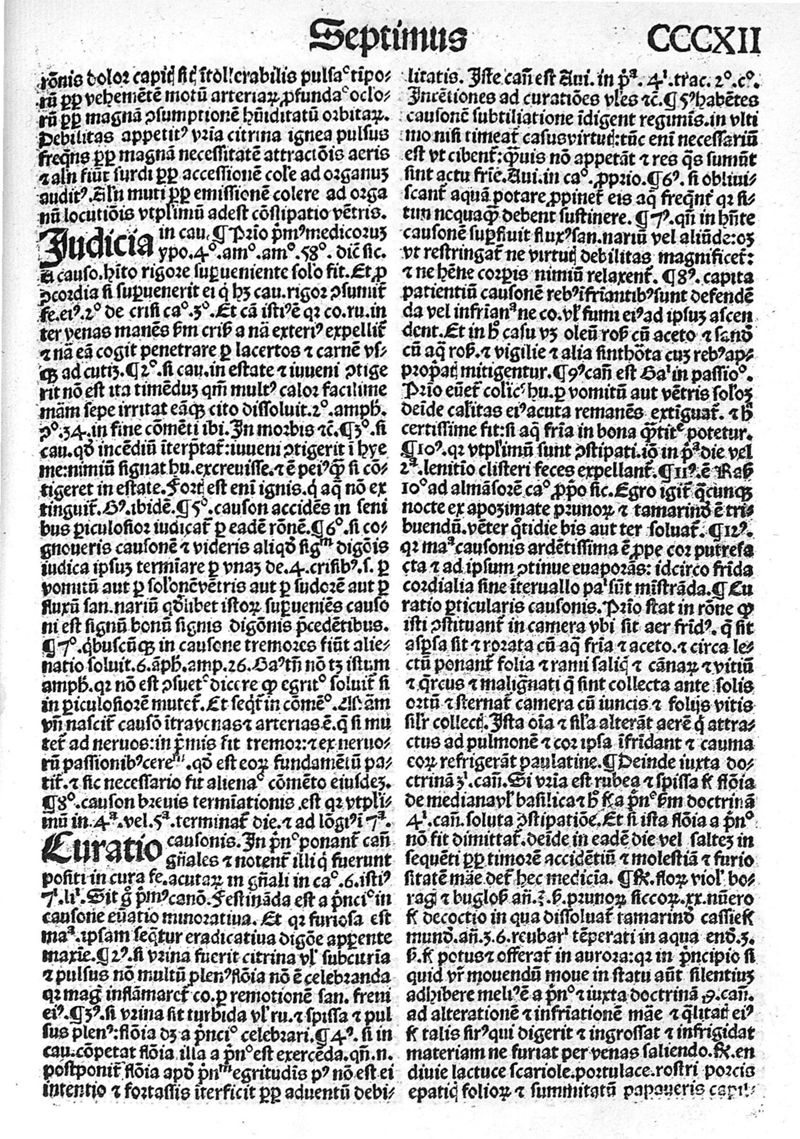 Septimus
CCCXII
rōnis dolor capiꝭ sicꝭ ītollerabilis pulsaᶜ tīpo-
rū ꝓp vehemētē motū arteriaꝝ ꝓfundaᶜ oclo-
rū ꝓp magnā ꝯsumptionē hūiditatū orbitaꝝ.
Debilitas appetitꝰ vrīa citrina ignea pulsus
freqns ꝓp magnā necessitatē attractōis aeris
⁊ aln̄ fiūt surdi ꝓp accessionē coleꝝ ad organuꝫ
auditꝰ. Aln̄ muti ꝓp emissionē colere ad orga
nū locutiōis vtplimū adest cōstipatio vētris.
Judicia in cau. ¶ Prīo pͥmꝰ medicoruꝫ
ypo.4°.am°.am°.58°. dicit̄ sic.
A causo. hīto rigore suꝑueniente solo fit. Et ꝓ
ꝯcordia si suꝑuenerit ei q hꝫ cau. rigor ꝯsumit̄
fe. eiꝰ. 2° de crisi ca°.3°. Et cā istiꝰ ē qꝛ co. ru. in
ter venas manēs hm crisꝭ a nā exteriꝰ expellit̄
⁊ nā eā cogit penetrare ꝑ lacertos ⁊ carnē vs-
qꝫ ad cutiꝫ. ¶ 2°. si cau. in estate ⁊ iuueni ꝯtige
rit nō est ita timēduꝫ qm̄ multꝰ calor facilime
mām sepe irritat eāqꝫ cito dissoluit. 2°. amph.
ꝯ°.34. in fine cōmēti ibi. In morbis ⁊c̄. ¶ 3°. si
cau. qd̄ incēdiū īterp̄tat̄: iuueni ꝯtigerit ī hye
me: nimiū signat hu. excreuisse. ⁊ ē peiꝰ qꝫ si cō-
tigeret in estate. Fortꝭ est eni ignis. q̄ aq̄ nō ex
tinguit̄. Gꝰ. ibidē. ¶ 5°. causon accidēs in seni
bus ꝑiculosior iudicat̄ ꝑ eadē rōnē. ¶ 6°. si co-
gnoueris causonē ⁊ videris aliqd̄ sigᵐ digōis
iudica ipsuꝫ termīare ꝑ vnaꝫ de.4. crisibꝰ. s. ꝑ
vomitū aut ꝑ solōnē vētris aut ꝑ sudorē aut ꝑ
fluxū san. nariū qd̄libet istoꝝ suꝑueniēs causo
ni est signū bonū signis digōnis p̄cedētibus.
¶ 7°. qbuscūqꝫ in causone tremores fiūt alie-
natio soluit. 6. aph̄. amp. 26. Gaᵗⁿ nō tꝫ istum
amph. qꝛ nō est ꝯsuetᶜ dicere ꝙ egritᵒ soluit̄ si
in ꝑiculosiorē mutet̄. Et seqt̄ in cōmē°. Als̄ am
vn̄ nascit̄ causō ītra venas ⁊ arterias ē. q̄ si mu
tet̄ ad neruos: in p̄mis fit tremor: ⁊ ex neruo-
rū passionibꝰ cereᵐ. qd̄ est eoꝝ fundamētū pa-
tit̄. ⁊ sic necessario fit alienaᶜ cōmēto eiusdeꝫ.
¶ 8°. causon breuis termīationis est qꝛ vtpli-
mū in.4ᵃ. vel.5ᵃ. terminat̄ die. ⁊ ad lōgiꝰ ī 7ᵃ.
Curatio causonis. In pͥn° ponant̄ can̄
gn̄ales ⁊ notent̄ illi q̄ fuerunt
positi in cura fe. acutaꝝ in gn̄ali in ca°. 6. istiꝰ
7ⁱ. liⁱ. Sit ḡ pͥmꝰ canō. Festināda est a p̄nciᵒ in
causone euātio minoratiua. Et qꝛ furiosa est
maᵃ. ipsam seqt̄ur eradicatiua digōe apꝑente
maxīe. ¶ 2ᵃ. si vrina fuerit citrina vl̄ subcitria
⁊ pulsus nō multū plenꝰ flōia nō ē celebranda
qꝛ magꝭ inflāmaret̄ co. ꝑ remotionē san. freni
eiꝰ. ¶ 3ᵃ. si vrina sit turbida vl̄ ru. ⁊ spissa ⁊ pul
sus plenꝰ: flōia dꝫ a p̄nciᵒ celebrari. ¶ 4ᵃ. si in
cau. cōpetat flōia illa a pͥn° est exercēda. qn̄. n.
postponit̄ flōia apd̄ pͥnᵐ egritudis pꝰ nō est ei
intentio ⁊ fortassis īterficit ꝓp aduentū debi-
litatis. Iste can̄ est Aui. in pͣ. 4ⁱ. trac. 2°. c°.
Incētiones ad curatiōes vl̄es ⁊c̄. ¶ 5ꝰ habētes
causonē subtiliatione īdigent regimīs. in vlti
mo nisi timeat̄ casus virtuꝭ: tūc eni necessariū
est vt cibent̄: qͣuis nō appetāt ⁊ res qs̄ sumūt
sint actu frīe. Aui. in ca°. ꝓprio. ¶ 6ꝰ. si obliui-
scant̄ aquā potare ꝓpinet̄ eis aq̄ freqnt̄ qꝛ si-
tim nequaqꝫ debent sustinere. ¶ 7ꝰ. qn̄ in hn̄te
causonē suꝑfluit fluxꝰ san. nariū vel aliūde: oꝫ
vt restringat̄ ne virtuꝭ debilitas magnificet̄:
⁊ ne hēne corꝑis nimiū relaxent̄. ¶ 8ꝰ. capita
patientiū causonē rebꝰ īfriantibꝰ sunt defendē
da vel infrianᵃ ne co. vl̄ fumi eiꝰ ad ipsuꝫ ascen
dent. Et in h̄ casu vꝫ oleū ros̄. cū aceto ⁊ sand̄
cū aq̄ ros̄. ⁊ vigilie ⁊ alia sinthōta cuꝫ rebꝰ ap-
propatꝭ mitigentur. ¶ 9ꝰ can̄ est Gaⁱ in passio°.
Prīo euet̄ colicꝰ hu. ꝑ vomitū aut vētris soloꝫ
deīde calitas eiꝰ acuta remanēs extiguat̄. ⁊ h̄
certissime fit: si aq̄ frīa in bona qͣntitᵉ potetur.
¶ 10ꝰ. qꝛ vtplimū sunt ꝯstipati. io in pͣ die vel
2ᵃ. lenitio clisteri feces expellant̄. ¶ 11ꝰ. ē Ras̄
10° ad almāsorē ca°. ꝓp̄o sic. Egro igit̄ qͣcunqꝫ
nocte ex apoꝫimate prunoꝝ ⁊ tamarindꝭ ē tri-
buendū. vēter qͣtidie bis aut ter soluat̄. ¶ 12ꝰ.
qꝛ maᵃ causonis ardētissima ē ꝓpe cor putrefa
cta ⁊ ad ipsum ꝯtinue euaporās: idcirco frīda
cordialia sine īteruallo paⁱ sūt mīstrāda. ¶ Cu
ratio ꝑticularis causonis. Prīo stat in rōne ꝙ
isti ꝯstituant̄ in camera vbi sit aer frīdꝰ. q̄ sit
asꝑsa sit ⁊ rorata cū aq̄ frīa ⁊ aceto. ⁊ circa le-
ctū ponant̄ folia ⁊ rami saliꝭ ⁊ cānaꝝ ⁊ vitiū
⁊ qͤrcus ⁊ maligͣnati q̄ sint collecta ante solis
ortū ⁊ sternat̄ camera cū iuncis ⁊ folijs vitis
silr̄ collecꝭ. Ista oīa ⁊ silᵃ alterāt aerē q̄ attra-
ctus ad pulmonē ⁊ cor ipsa īfrīdant ⁊ cauma
coꝝ refrigerāt paulatine. ¶ Deinde iuxta do-
ctrinā 3ⁱ. can̄. Si vrīa est rubea ⁊ spissa fꝭ flōia
de mediana vl̄ basilica ⁊ h̄ fꝭ a pͥn° ẜm doctrinā
4ⁱ. can̄. soluta ꝯstipatiōe. Et si ista flōia a pͥn°
nō fit dimittat̄. deīde in eadē die vel salteꝫ in
sequēti ꝓp timorē accidētiū ⁊ molestiā ⁊ furio
sitatē māe det̄ hec medicīa. ¶ ℞. floꝝ violꝰ bo-
raḡ ⁊ buglos̄ an̄. ℥. ß. prunoꝝ siccoꝝ. xx. nūero
fꝭ decoctio in qua dissoluat̄ tamarindꝭ cassieꝭ
mund̄. an̄. ʒ. 6. reubarⁱ tēꝑati in aqua end̄. ʒ.
ß. fꝭ potus ⁊ offerat̄ in aurora: qꝛ in p̄ncipio si
quid vr̄ mouendū moue in statu aūt silentiuꝫ
adhibere meliꝰ ē a pͥn° ⁊ iuxta doctrinā 9. can̄.
ad alterationē ⁊ infriationē māe ⁊ qͣlitatꝭ eiꝰ
fꝭ talis sirꝰ qui digerit ⁊ ingrossat ⁊ infrigidat
materiam ne furiat per venas saliendo. ℞. en
diuie lactuce scariole. portulace. rostri porcis
epaticꝭ folioꝝ ⁊ summitatū papaueris capil-